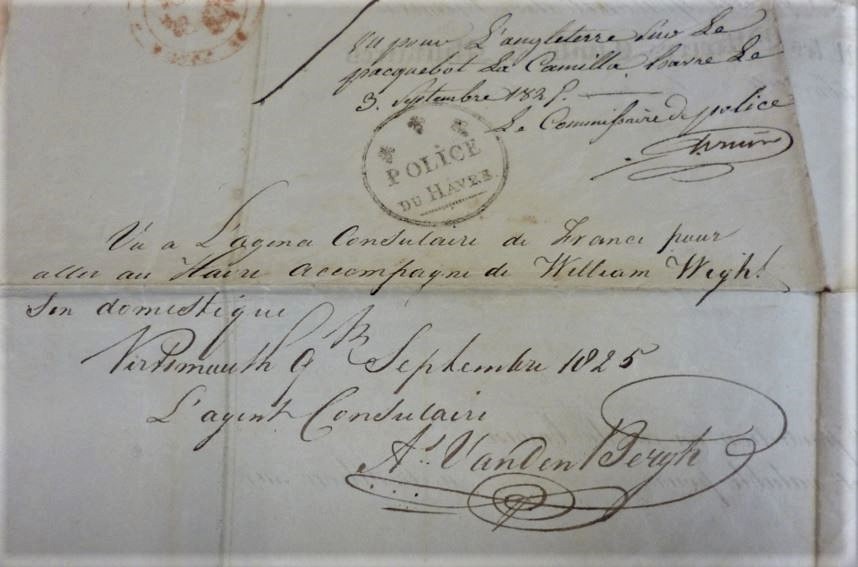 Vu pour L'angleterre sur Le
pacquebot La Camilla, havre Le
3. Septembre 1825. —
Le Commissaire de police
POLICE
DU HAVRE.
Vu a L'agence Consulaire de France pour
aller au Havre accompagné de William Wight
Son domestique
9 Septembre 1825
L'agent Consulaire
As. VanDen Bergh